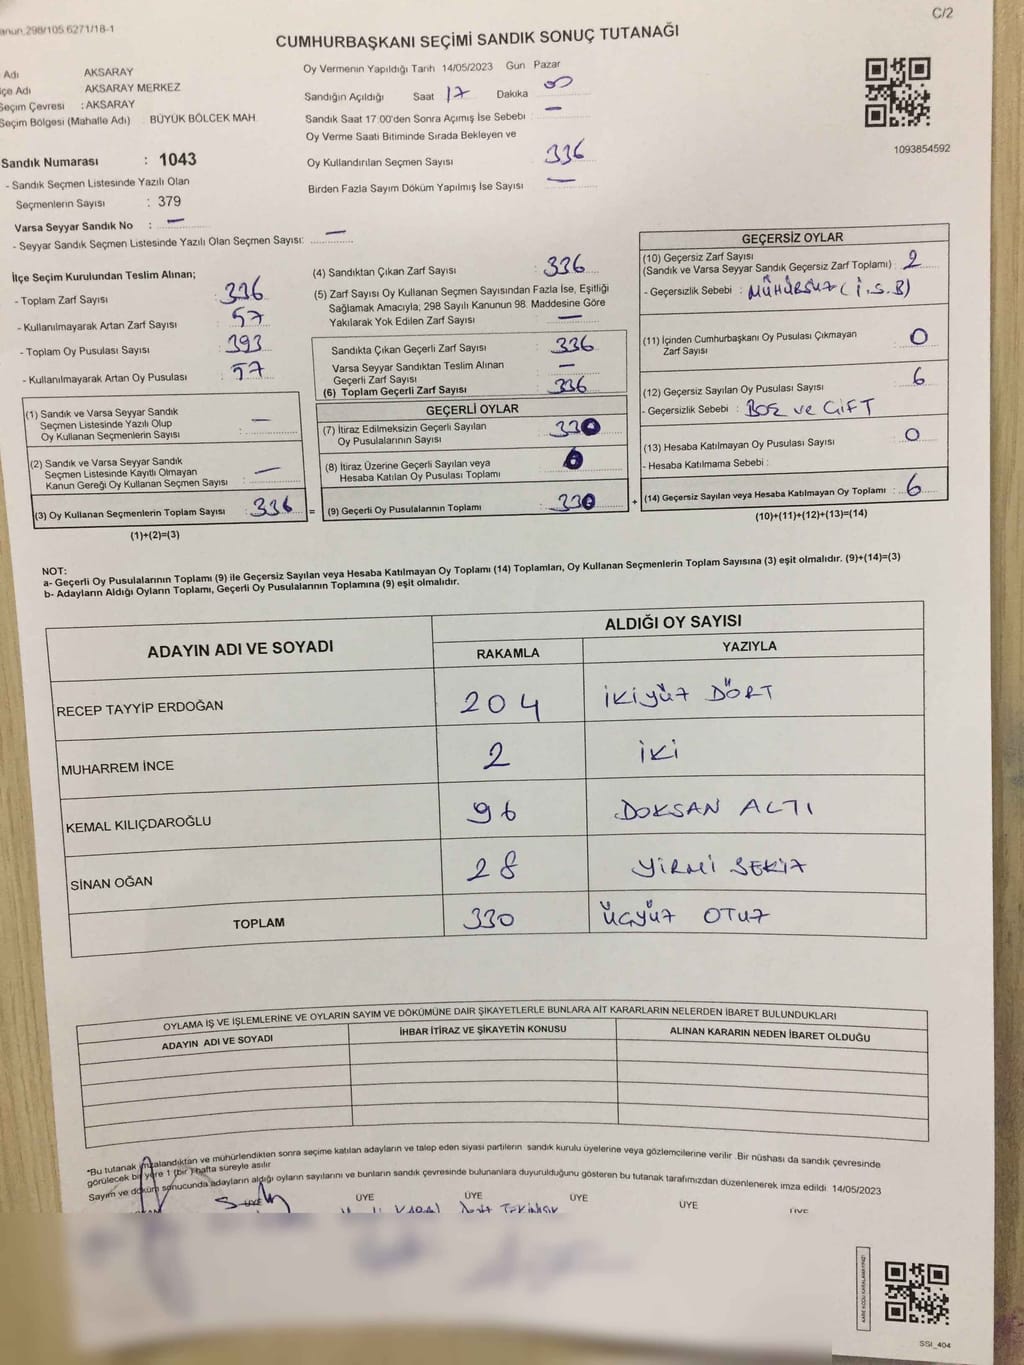 anun.298/105.6271/18-1
C/2
CUMHURBAŞKANI SEÇİMİ SANDIK SONUÇ TUTANAĞI
Adı AKSARAY
lçe Adı AKSARAY MERKEZ
Seçim Çevresi : AKSARAY
Seçim Bölgesi (Mahalle Adı) BÜYÜK BÖLCEK MAH.
Sandık Numarası : 1043
- Sandık Seçmen Listesinde Yazılı Olan
Seçmenlerin Sayısı : 379
Varsa Seyyar Sandık No : —
- Seyyar Sandık Seçmen Listesinde Yazılı Olan Seçmen Sayısı: —
Oy Vermenin Yapıldığı Tarih 14/05/2023 Gün Pazar
Sandığın Açıldığı Saat 17 Dakika 00
Sandık Saat 17.00'den Sonra Açılmış İse Sebebi : —
Oy Verme Saati Bitiminde Sırada Bekleyen ve
Oy Kullandırılan Seçmen Sayısı 336
Birden Fazla Sayım Döküm Yapılmış İse Sayısı —
1093854592
İlçe Seçim Kurulundan Teslim Alınan;
- Toplam Zarf Sayısı : 336
- Kullanılmayarak Artan Zarf Sayısı : 57
- Toplam Oy Pusulası Sayısı : 393
- Kullanılmayarak Artan Oy Pusulası : 57
(1) Sandık ve Varsa Seyyar Sandık
Seçmen Listesinde Yazılı Olup
Oy Kullanan Seçmenlerin Sayısı : —
(2) Sandık ve Varsa Seyyar Sandık
Seçmen Listesinde Kayıtlı Olmayan
Kanun Gereği Oy Kullanan Seçmen Sayısı : —
(3) Oy Kullanan Seçmenlerin Toplam Sayısı : 336
(1)+(2)=(3)
(4) Sandıktan Çıkan Zarf Sayısı : 336
(5) Zarf Sayısı Oy Kullanan Seçmen Sayısından Fazla İse, Eşitliği
Sağlamak Amacıyla; 298 Sayılı Kanunun 98. Maddesine Göre
Yakılarak Yok Edilen Zarf Sayısı : —
Sandıkta Çıkan Geçerli Zarf Sayısı : 336
Varsa Seyyar Sandıktan Teslim Alınan
Geçerli Zarf Sayısı : —
(6) Toplam Geçerli Zarf Sayısı : 336
GEÇERLİ OYLAR
(7) İtiraz Edilmeksizin Geçerli Sayılan
Oy Pusulalarının Sayısı : 330
(8) İtiraz Üzerine Geçerli Sayılan veya
Hesaba Katılan Oy Pusulası Toplamı :
= (9) Geçerli Oy Pusulalarının Toplamı : 330
GEÇERSİZ OYLAR
(10) Geçersiz Zarf Sayısı
(Sandık ve Varsa Seyyar Sandık Geçersiz Zarf Toplamı) : 2
- Geçersizlik Sebebi : MÜHÜRSÜZ (İ.S.B)
(11) İçinden Cumhurbaşkanı Oy Pusulası Çıkmayan
Zarf Sayısı : 0
(12) Geçersiz Sayılan Oy Pusulası Sayısı : 6
- Geçersizlik Sebebi : BOŞ ve ÇİFT
(13) Hesaba Katılmayan Oy Pusulası Sayısı : 0
- Hesaba Katılmama Sebebi :
+ (14) Geçersiz Sayılan veya Hesaba Katılmayan Oy Toplamı : 6
(10)+(11)+(12)+(13)=(14)
NOT:
a- Geçerli Oy Pusulalarının Toplamı (9) ile Geçersiz Sayılan veya Hesaba Katılmayan Oy Toplamı (14) Toplamları, Oy Kullanan Seçmenlerin Toplam Sayısına (3) eşit olmalıdır. (9)+(14)=(3)
b- Adayların Aldığı Oyların Toplamı, Geçerli Oy Pusulalarının Toplamına (9) eşit olmalıdır.
ADAYIN ADI VE SOYADI
ALDIĞI OY SAYISI
RAKAMLA YAZIYLA
RECEP TAYYİP ERDOĞAN 204 İKİYÜZ DÖRT
MUHARREM İNCE 2 İKİ
KEMAL KILIÇDAROĞLU 96 DOKSAN ALTI
SİNAN OĞAN 28 YİRMİ SEKİZ
TOPLAM 330 ÜÇYÜZ OTUZ
OYLAMA İŞ VE İŞLEMLERİNE VE OYLARIN SAYIM VE DÖKÜMÜNE DAİR ŞİKAYETLERLE BUNLARA AİT KARARLARIN NELERDEN İBARET BULUNDUKLARI
ADAYIN ADI VE SOYADI İHBAR İTİRAZ VE ŞİKAYETİN KONUSU ALINAN KARARIN NEDEN İBARET OLDUĞU
*Bu tutanak imzalandıktan ve mühürlendikten sonra seçime katılan adayların ve talep eden siyasi partilerin sandık kurulu üyelerine veya gözlemcilerine verilir. Bir nüshası da sandık çevresinde
görülecek bir yere 1 (bir ) hafta süreyle asılır
Sayım ve döküm sonucunda adayların aldığı oyların sayılarını ve bunların sandık çevresinde bulunanlara duyurulduğunu gösteren bu tutanak tarafımızdan düzenlenerek imza edildi. 14/05/2023
ÜYE ÜYE ÜYE ÜYE ÜYE ÜYE
KARE KODU KARALAMAYINIZ!
SSI_404